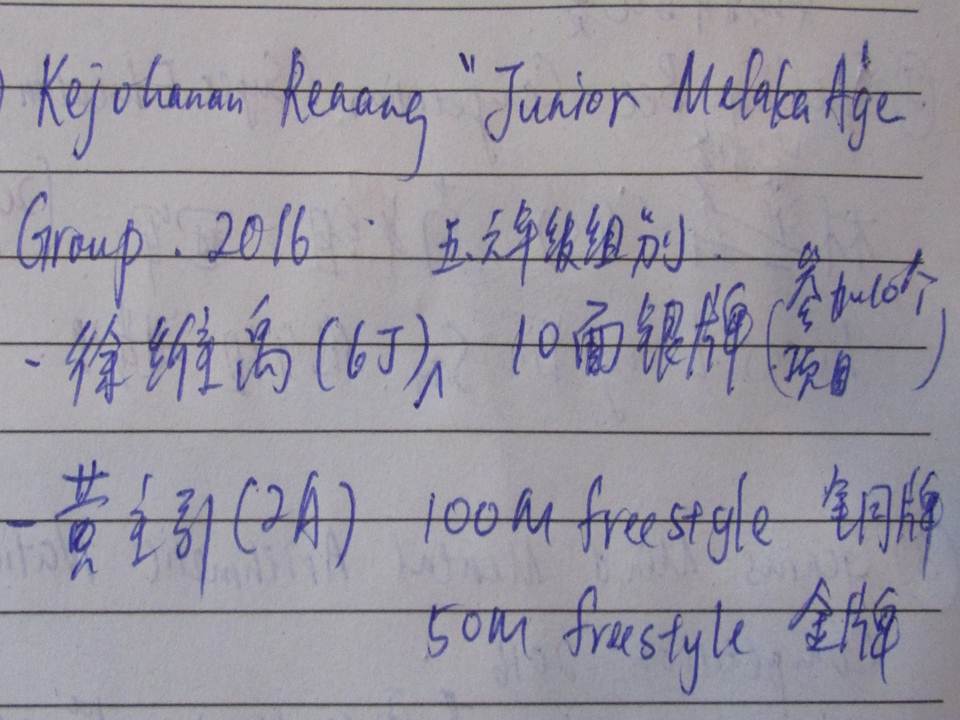 ) Kejohanan Renang "Junior Melaka Age
Group . 2016 " 五.六年级组别.
- 徐维禹(6J), 10面银牌(参加10个项目)
- 黄主引(2A) 100m freestyle 铜牌
50m freestyle 金牌